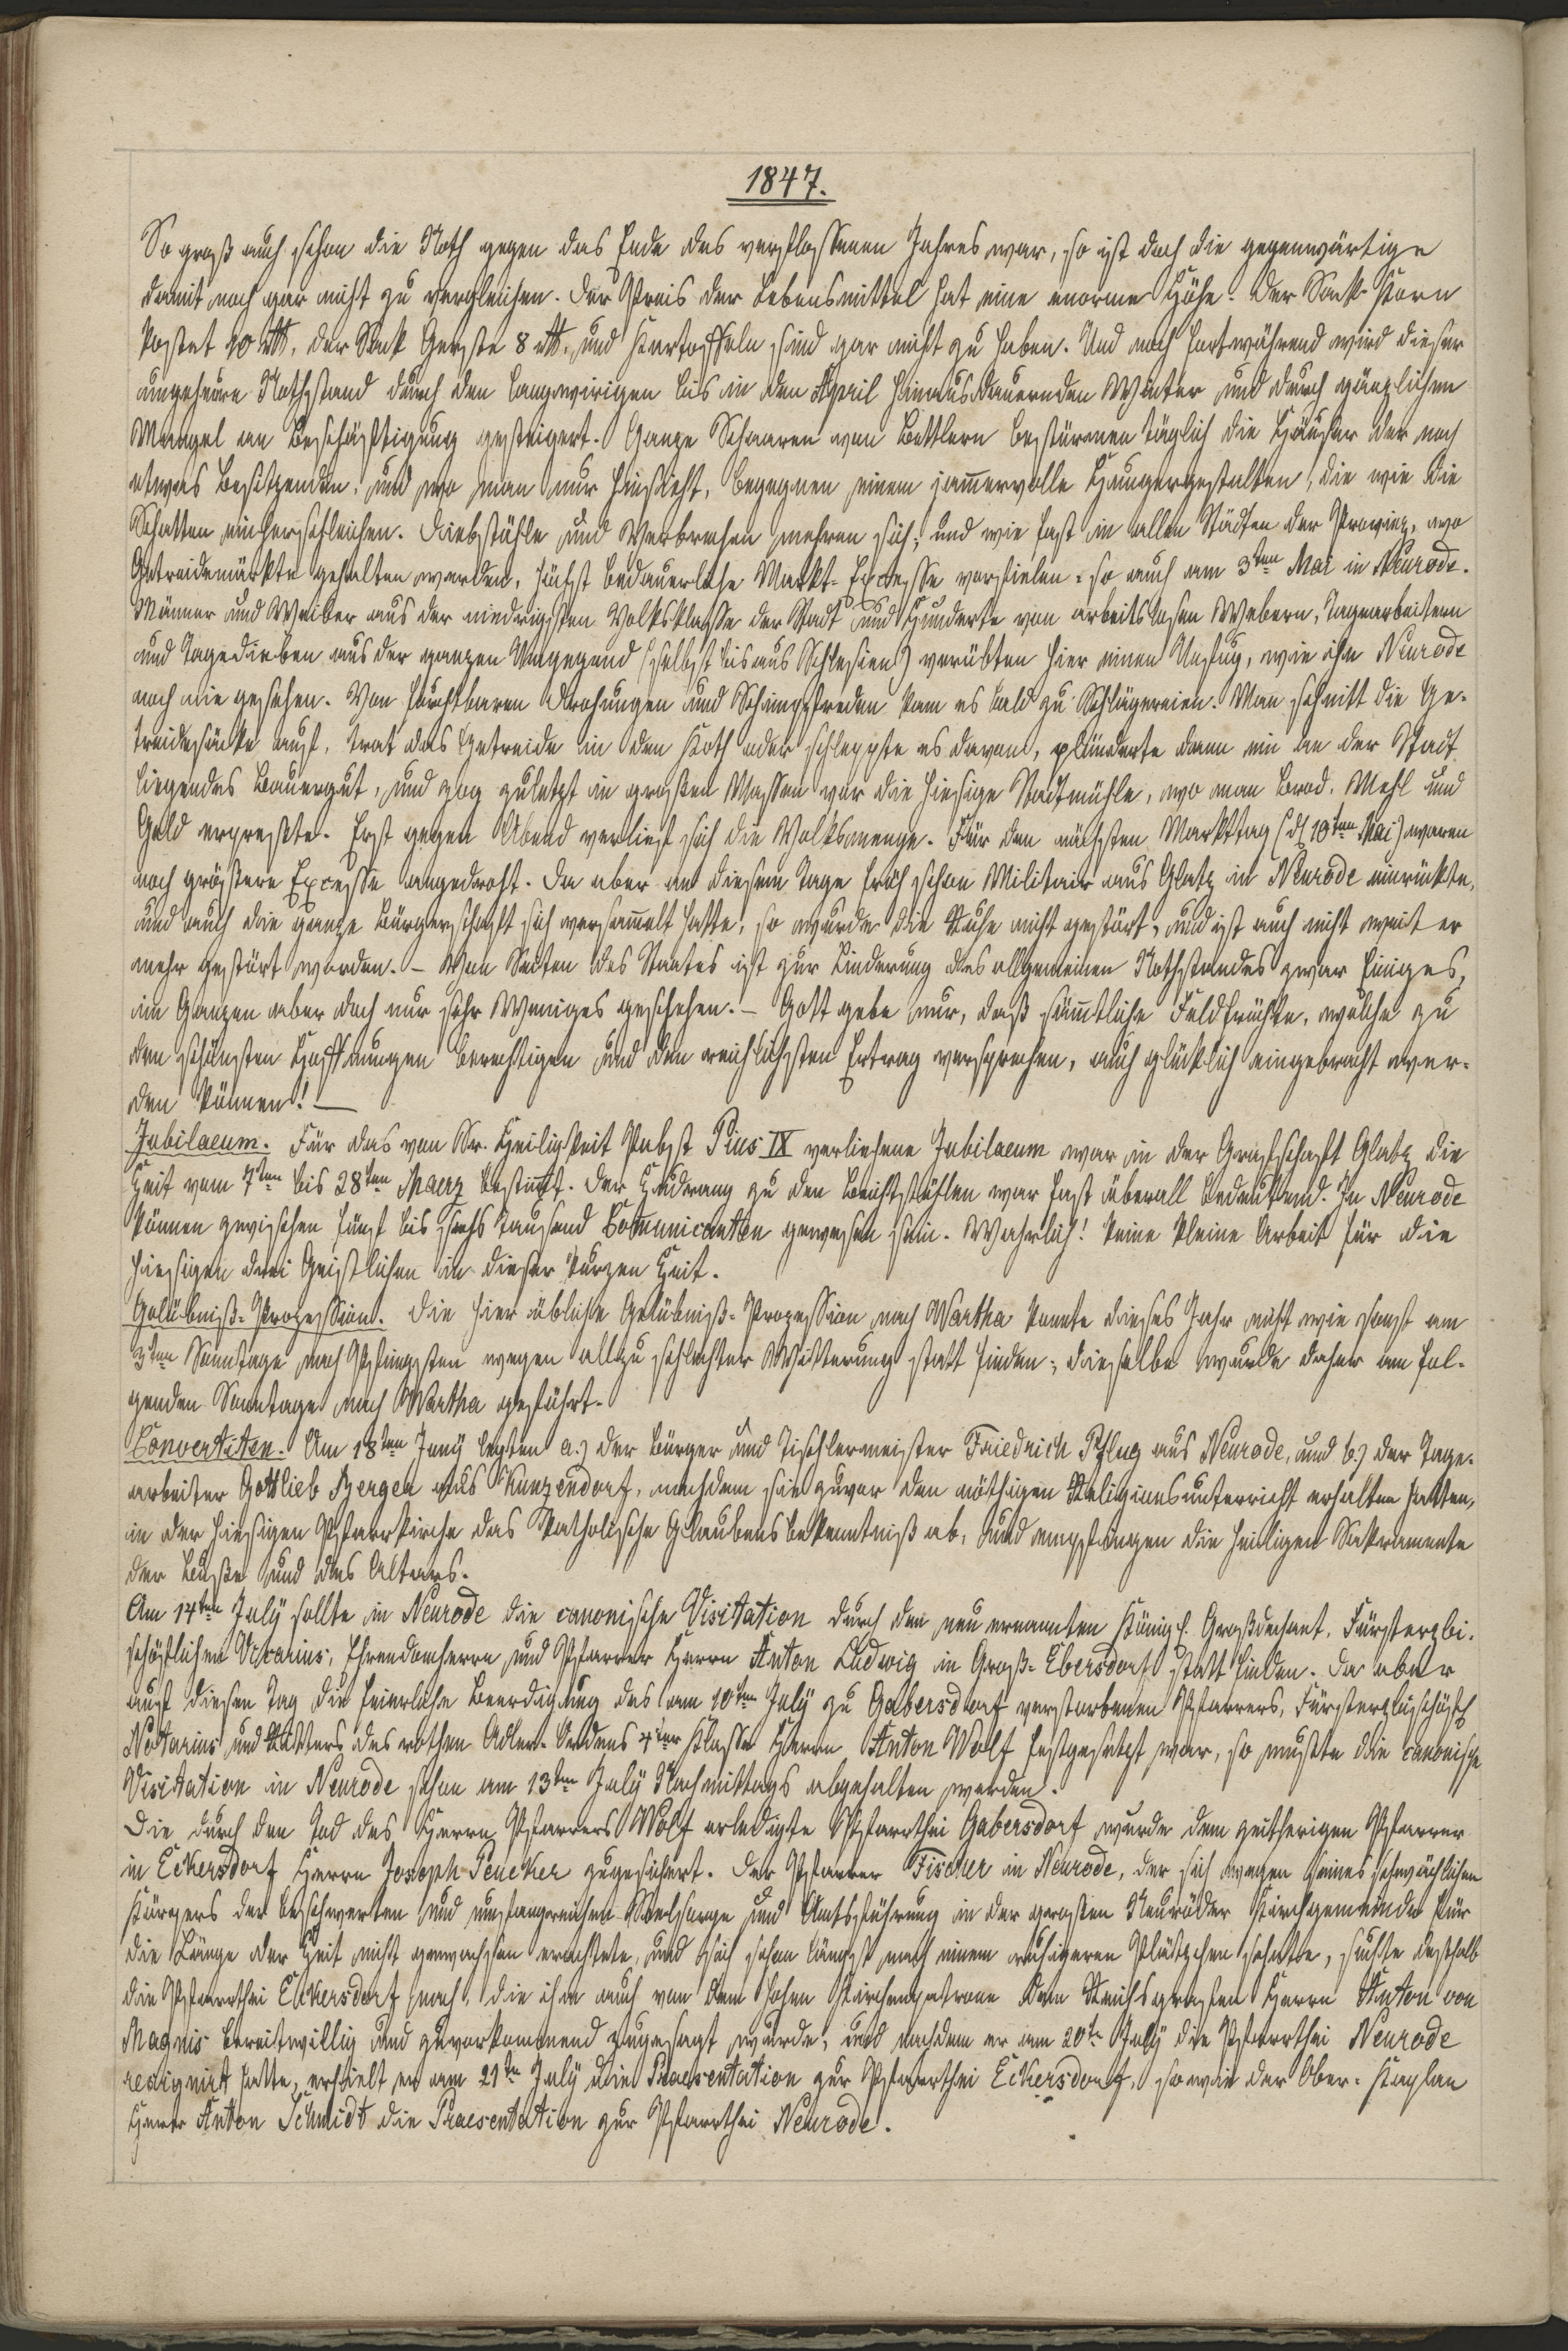 1847.
So groß auch schon die Noth gegen das Ende des verflossenen Jahres war, so ist doch die gegenwärtige
damit noch gar nicht zu vergleichen. Der Preis der Lebensmittel hat eine enorme Höhe. Der Sack Korn
kostet 10 rtl., der Sack Gerste 8 rtl., und Kartoffeln sind gar nicht zu haben. Und noch fortwährend wird dieser
ungeheure Nothstand durch den langwirigen bis in den April hinausdauernden Winter und durch gänzlichen
Mangel an Beschäftigung gesteigert. Ganze Schaaren von Bettlern bestürmen täglich die Häuser der noch
etwas Besitzenden, und wo man nur hinsieht, begegnen einem jam̄ervolle Hungergestalten, die wie die
Schatten einherschleichen. Diebstähle und Verbrechen mehren sich; und wie fast in allen Städten der Provinz, wo
Getreidemärkte gehalten werden, höchst bedauerliche Markt-Excesse vorfielen, so auch am 3ten Mai in Neurode.
Männer und Weiber aus der niedrigsten Volksklasse der Stadt und Hunderte von arbeitslosen Webern, Tagearbeitern
und Tagedieben aus der ganzen Umgegend (selbst bis aus Schlesien) verübten hier einen Unfug, wie ihn Neurode
noch nie gesehen. Von furchtbaren Drohungen und Schimpfreden kam es bald zu Schlägereien. Man schnitt die Ge-
treidesäcke auf, trat das Getreide in den Koth oder schleppte es davon, plünderte dann ein an der Stadt
liegendes Bauergut, und zog zuletzt in großen Massen vor die hiesige Stadtmühle, wo man Brod, Mehl und
Geld erpreßte. Erst gegen Abend verlief sich die Volksmenge. Für den nächsten Markttag (d. 10ten Mai) waren
noch größere Excesse angedroht. Da aber an diesem Tage früh schon Militair aus Glatz in Neurode einrückte,
und auch die ganze Bürgerschaft sich versam̄elt hatte, so wurde die Ruhe nicht gestört, und ist auch nicht weit er
mehr gestört worden. – Von Seiten des Staates ist zur Linderung des allgemeinen Nothstandes zwar Einiges,
im Ganzen aber doch nur sehr Weniges geschehen. – Gott gebe nur, daß säm̄tliche Feldfrüchte, welche zu
den schönsten Hoffnungen berechtigen und den reichlichsten Ertrag versprechen, auch glücklich eingebracht wer-
den können! –
Jubilaeum. Für das von Sr. Heiligkeit Pabst Pius IX verliehene Jubilaeum war in der Grafschaft Glatz die
Zeit vom 7ten bis 28ten Maerz bestim̄t. Der Zudrang zu den Beichtstühlen war fast überall bedeutend. In Neurode
können zwischen fünf bis sechs tausend Com̄unicanten gewesen sein. Wahrlich! keine kleine Arbeit für die
hiesigen drei Geistlichen in dieser kurzen Zeit.
Gelübniß-Prozession. Die hier übliche Gelübniß-Prozession nach Wartha konnte dieses Jahr nicht wie sonst am
3ten Sonntage nach Pfingsten wegen allzu schlechter Witterung statt finden; dieselbe wurde daher am fol-
genden Sonntage nach Wartha geführt.
Convertiten. Am 18ten Juny legten a.) der Bürger und Tischlermeister Friedrich Pflug aus Neurode, und b.) der Tage-
arbeiter Gottlieb Berger aus Kunzendorf, nachdem sie zuvor den nöthigen Religionsunterricht erhalten hatten,
in der hiesigen Pfarrkirche das katholische Glaubensbekenntniß ab, und empfingen die heiligen Sakramente
der Buße und des Altars.
Am 14ten July sollte in Neurode die canonische Visitation durch den neu ernannten Königl. Großdechant, Fürsterzbi-
schöflichen Vicarius, Ehrendomherrn und Pfarrer Herrn Anton Ludwig in Groß-Ebersdorf statt finden. Da aber
auf diesen Tag die feierliche Beerdigung des am 10ten July zu Gabersdorf verstorbenen Pfarrers, Fürsterzbischöfl.
Notarius und Ritters des rothen Adler-Ordens 4ter Klasse Herrn Anton Wolf festgesetzt war, so mußte die canonische
Visitation in Neurode schon am 13ten July Nachmittags abgehalten werden.
Die durch den Tod des Herrn Pfarrers Wolf erledigte Pfarrthei Gabersdorf wurde dem zeitherigen Pfarrer
in Eckersdorf Herrn Joseph Peucker zugesichert. Der Pfarrer Fischer in Neurode, der sich wegen seines schwächlichen
Körpers der beschwerten und umfangreichen Seelsorge und Amtsführung in der großen Neuroder Kirchgemeinde für
die Länge der Zeit nicht gewachsen erachtete, und sich schon längst nach einem ruhigeren Plätzchen sehnte, suchte deshalb
die Pfarrthei Eckersdorf nach, die ihm auch von dem hohen Kirchenpatrone dem Reichsgrafen Herrn Anton von
Magnis bereitwillig und zuvorkommend zugesagt wurde, und nachdem er am 20ten July die Pfarrthei Neurode
resignirt hatte, erhielt er am 21ten July die Praesentation zur Pfarrthei Eckersdorf, sowie der Ober-Kaplan
Herr Anton Schmidt die Praesentation zur Pfarrthei Neurode.